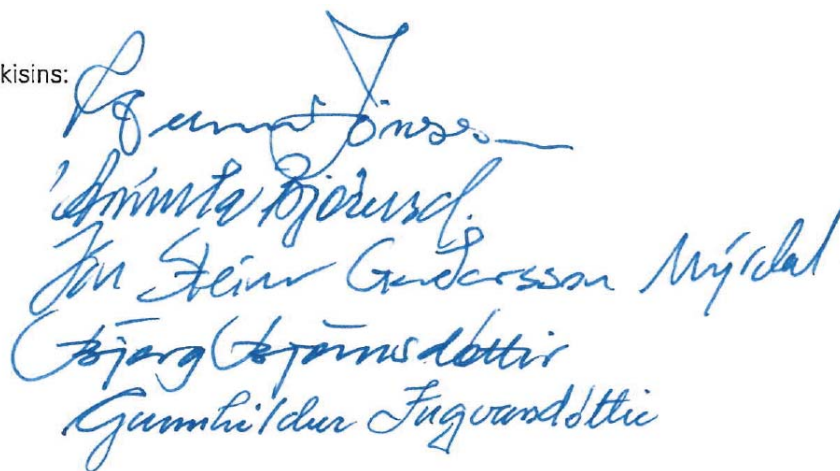 kisins:
Gunnar Jónsson
Árnína Björnsd.
Jón Steinar Garðarsson Mýrdal
Ásbjörg Ásbjörnsdóttir
Gunnhildur Ingvarsdóttir